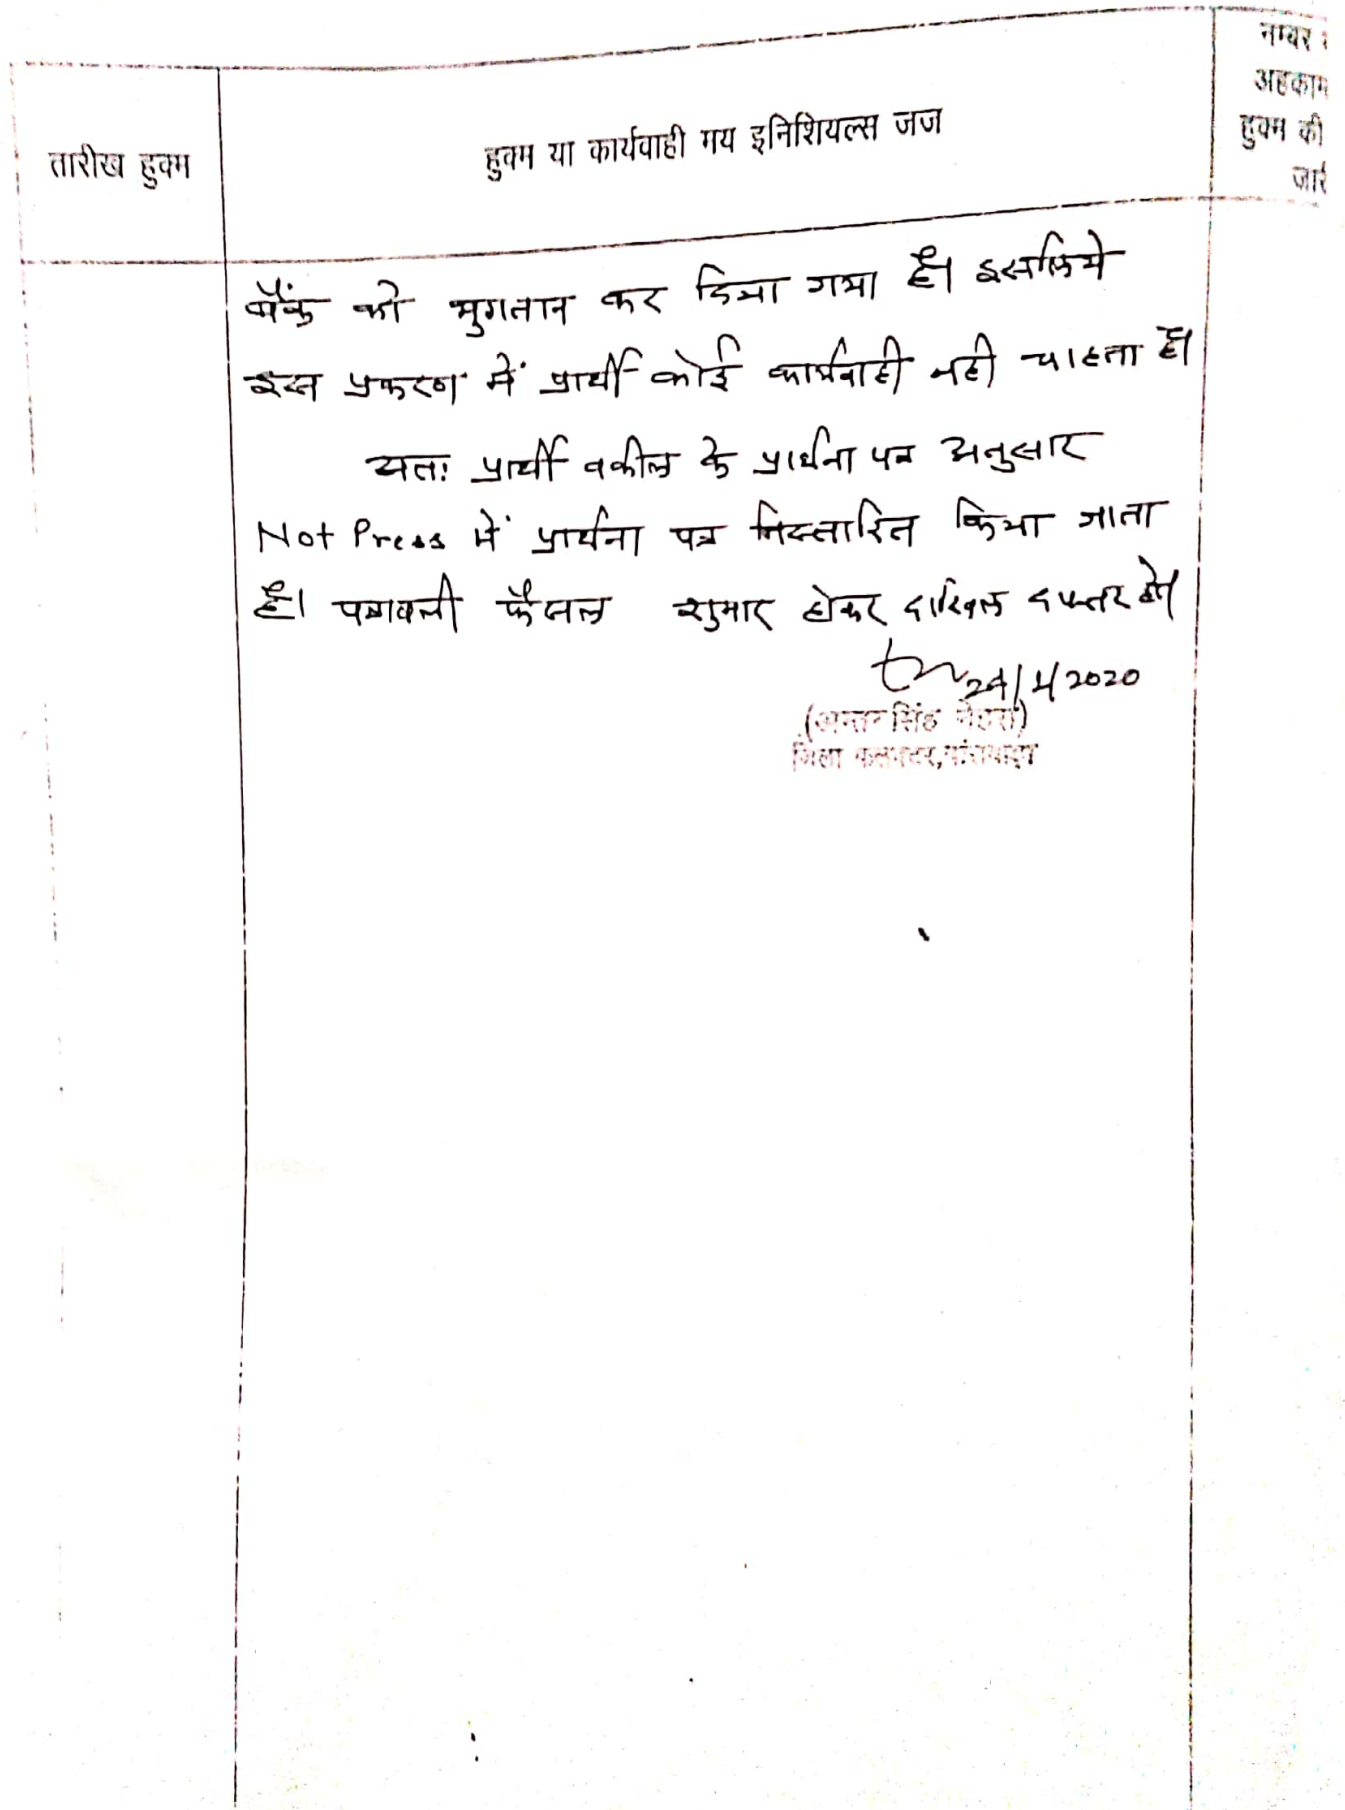 तारीख हुक्म
हुक्म या कार्यवाही मय इनिशियल्स जज
नम्बर
अहकाम
हुक्म की
जारी
बैंक को भुगतान कर दिया गया है। इसलिये
इस प्रकरण में प्रार्थी कोई कार्यवाही नही चाहता है।
अतः प्रार्थी वकील के प्रार्थना पत्र अनुसार
Not Press में प्रार्थना पत्र निस्तारित किया जाता
है। पत्रावली फैसल शुमार होकर दाखिल दफ्तर हो।
2020
(अन्तर सिंह नेहरा)
जिला कलक्टर,